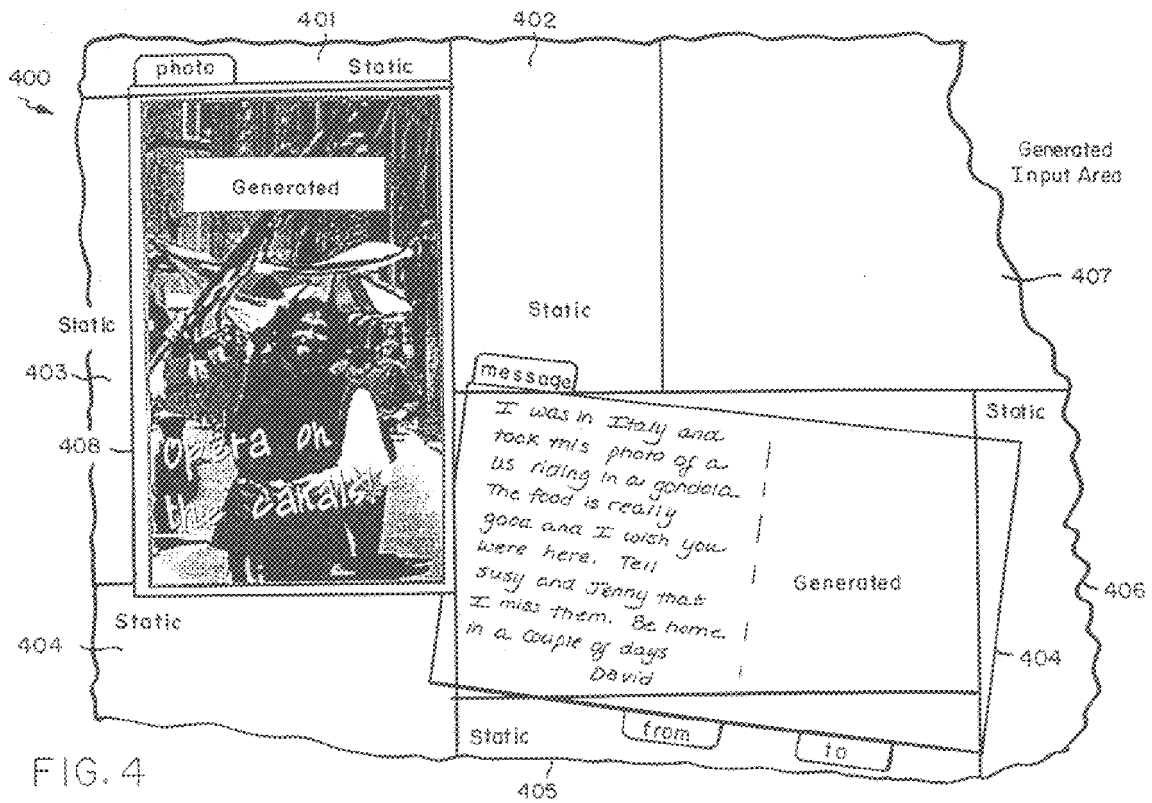 401
402
400
photo
Static
Generated
Input Area
Generated
407
Static
Static
403
message
Static
408
opera on
the canals
I was in Italy and
took this photo of a
us riding in a gondola.
The food is really
good and I wish you
were here. Tell
susy and Jenny that
I miss them. Be home
in a couple of days
David
Generated
406
Static
404
404
Static
from
to
405
FIG. 4